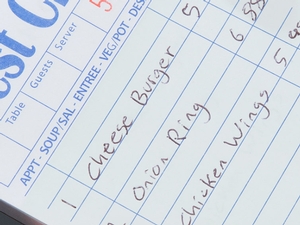 est C
Table Guests Server
5
APPT - SOUP/SAL - ENTREE - VEG/POT - DES
1 Cheese Burger 5
Onion Ring 6 88
Chicken Wings 5